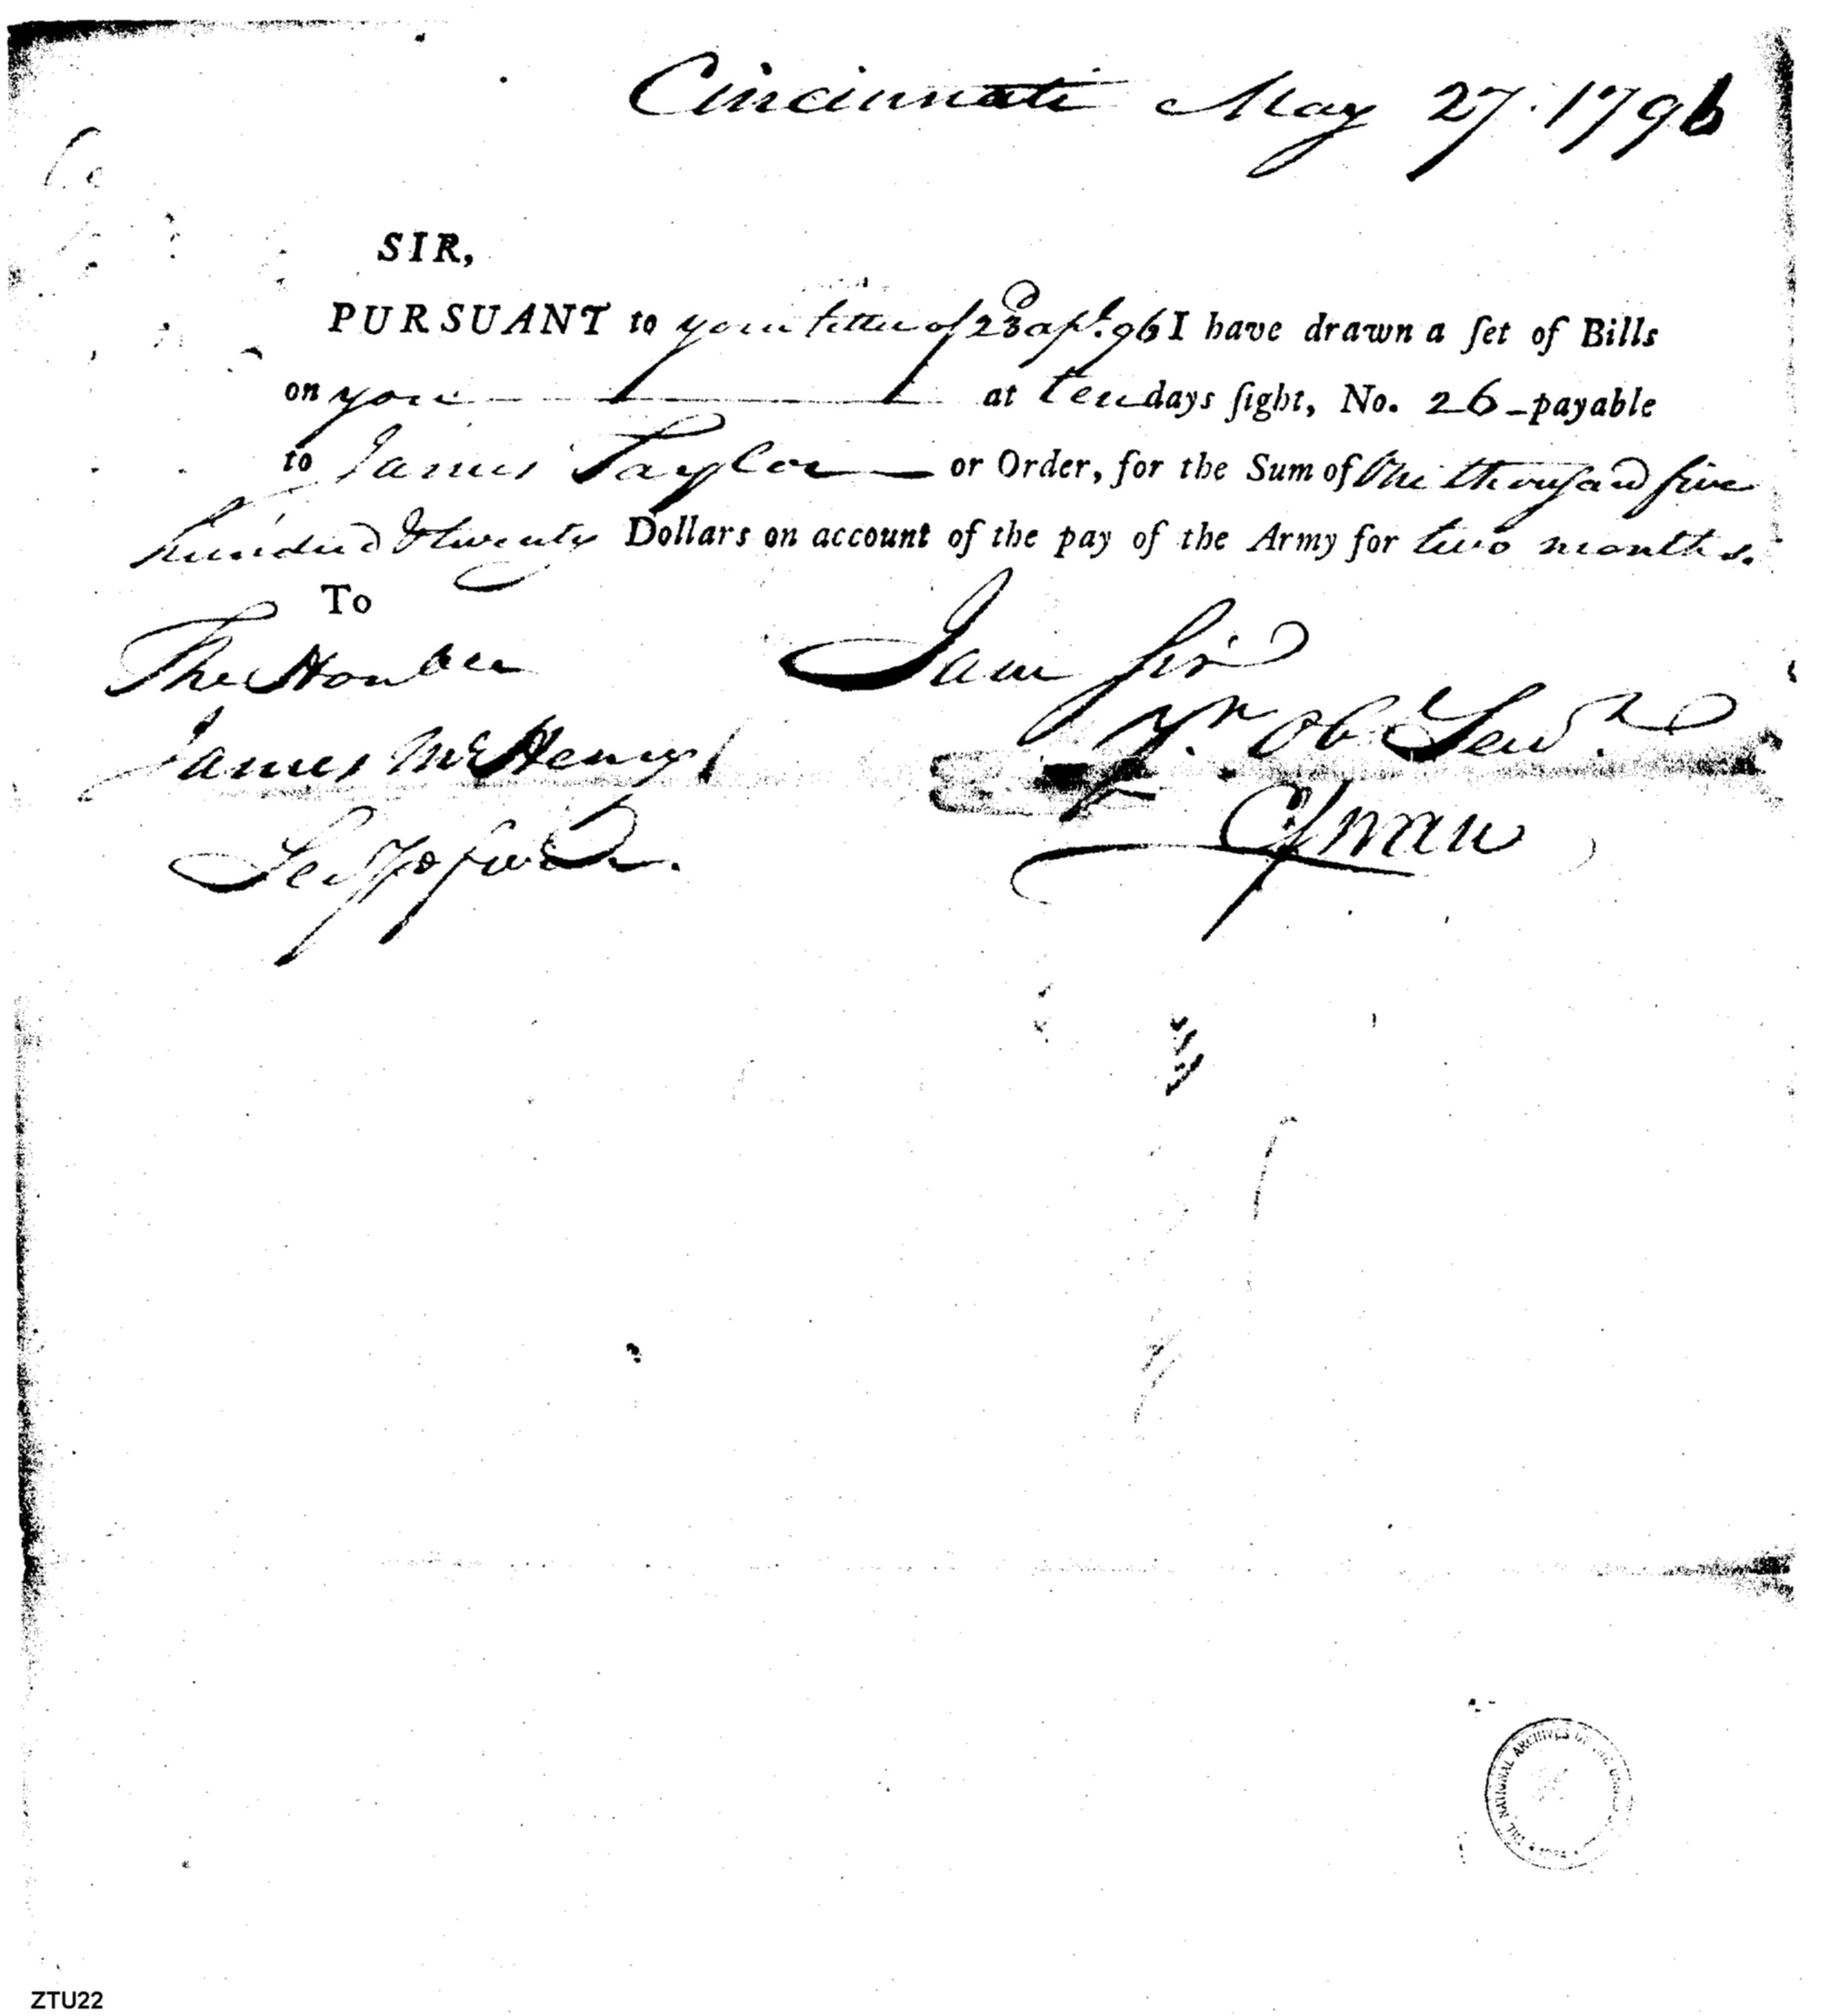 Cincinnati May 27. 1796
SIR,
PURSUANT to your letter of 23d apl. 96 I have drawn a ſet of Bills
on you at ten days ſight, No. 26 payable
to James Taylor or Order, for the Sum of One thouſand five
hundred & twenty Dollars on account of the pay of the Army for two months.
To
The Honble I am Sir
James McHenry Yr. Ob Serv.
Secy of War. C Swan
THE NATIONAL ARCHIVES OF THE
ZTU22